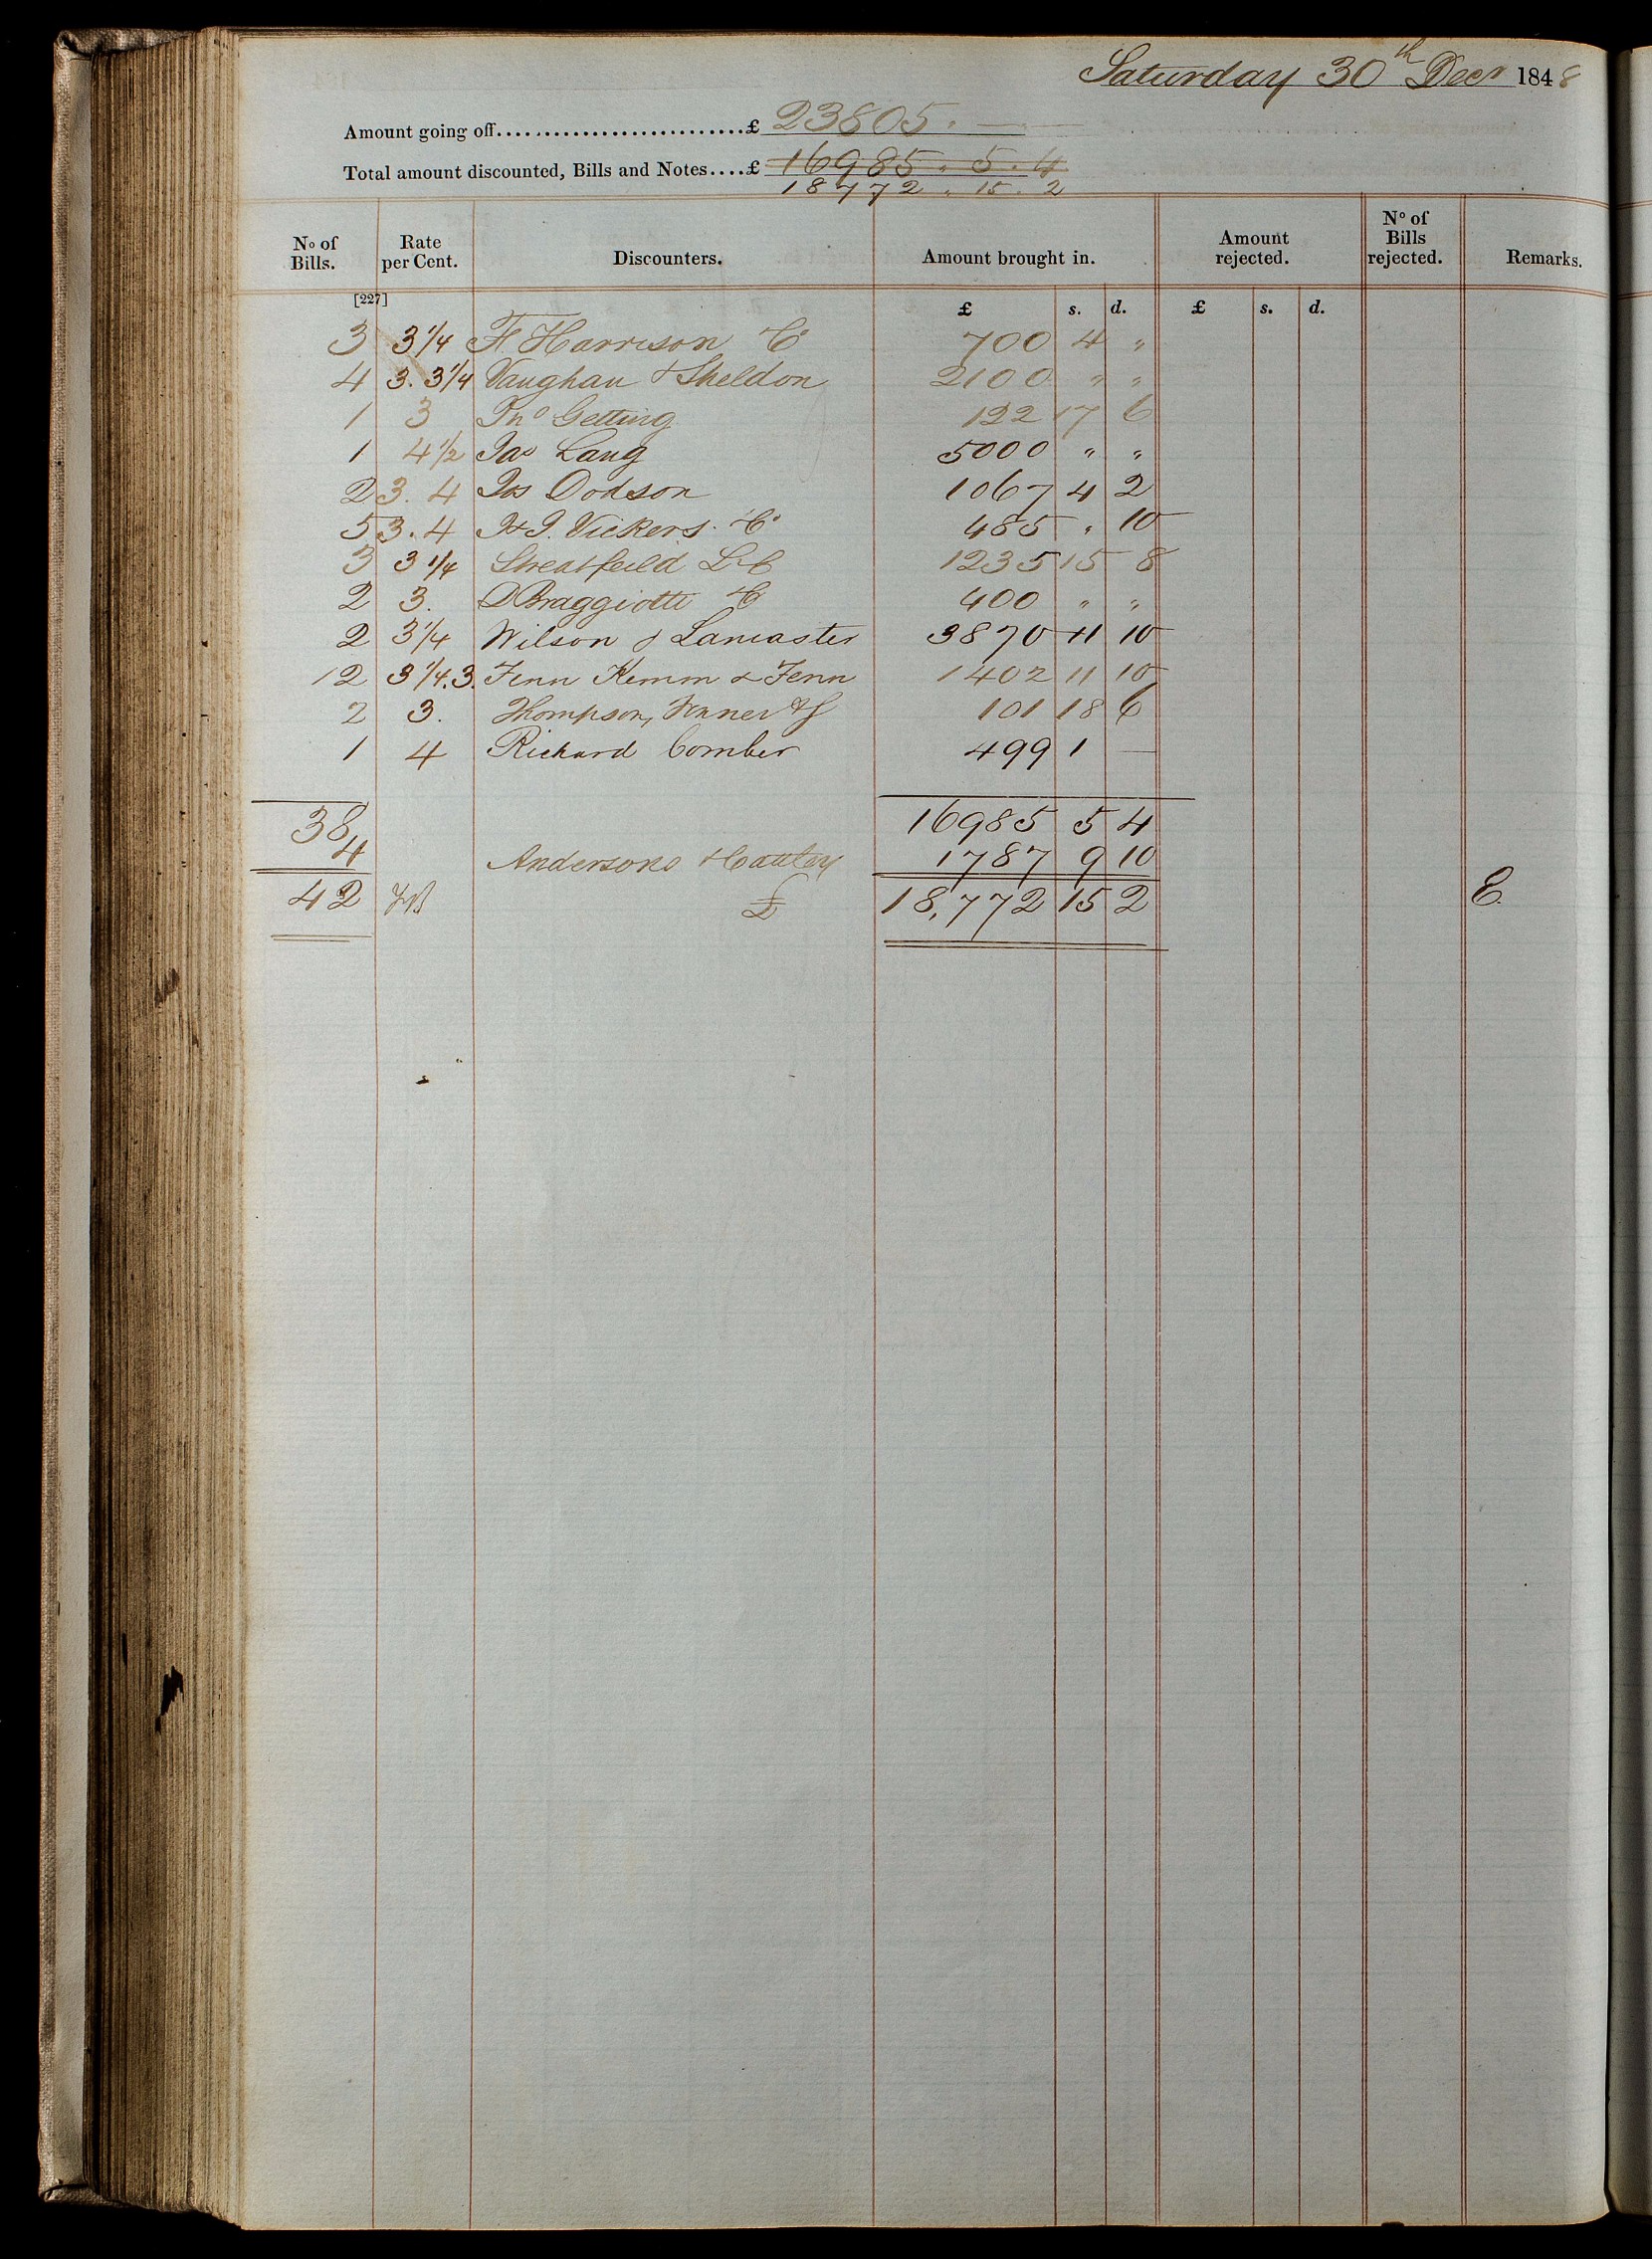 Saturday 30th Decr 1848
Amount going off...........................£ 23805 . —
Total amount discounted, Bills and Notes....£ 16985 . 5 . 4
18772 . 15 . 2
No of Bills. Rate per Cent. Discounters. Amount brought in. Amount rejected. No of Bills rejected. Remarks.
[227] £ s. d. £ s. d.
3 3 1/4 F. Harrison &Co 700 4 "
4 3. 3 1/4 Vaughan & Sheldon 2100 " "
1 3 Jno Getting 122 17 6
1 4 1/2 Jas Lang 5000 " "
2 3. 4 Jos Dodson 1067 4 2
5 3. 4 J & J. Vickers &Co 485 " 10
3 3 1/4 Streatfeild L&C 1235 15 8
2 3. D Braggiotti &C 400 " "
2 3 1/4 Wilson & Lancaster 3870 11 10
12 3 1/4. 3. Fenn Kemm & Fenn 1402 11 10
2 3. Thompson, &S 101 18 6
1 4 Richard Comber 499 1 —
38 16985 5 4
4 Andersons & Cattley 1787 9 10
42 £ 18,772 15 2
E.